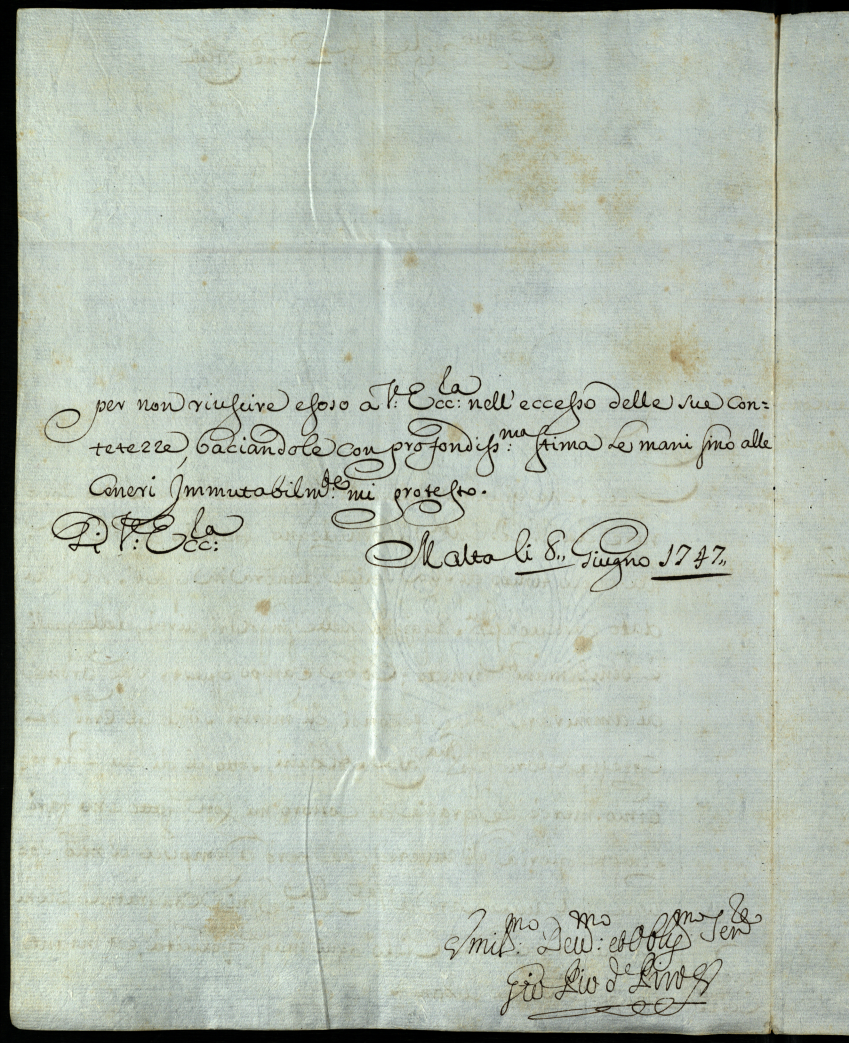 per non riuscire esoso a V: Ecc:la nell'eccesso delle sue con=
tetezze, baciandole con profondiss:ma stima le mani sino alle
Ceneri Immutabilm:de mi protesto.
Di V: Ecc:la Malta li 8,, Giugno 1747,,
Umil:mo Dev:mo et Oblig:mo Ser:re
Gio Pio de Piro